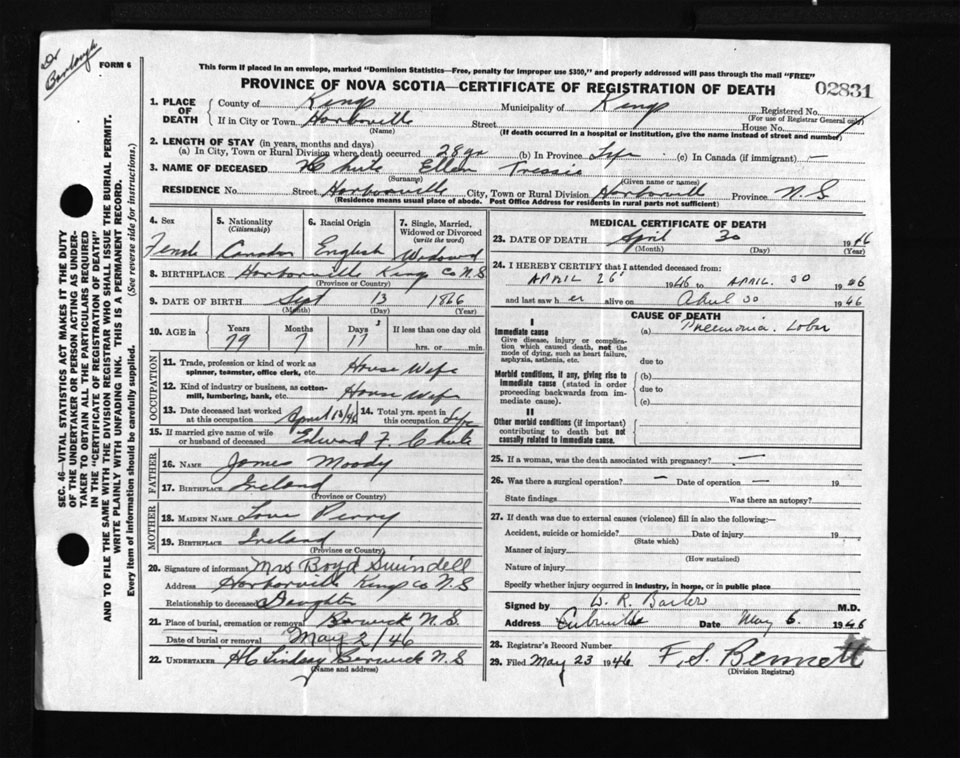 Dr
FORM 6
This form if placed in an envelope, marked "Dominion Statistics—Free, penalty for improper use $300," and properly addressed will pass through the mail "FREE"
PROVINCE OF NOVA SCOTIA—CERTIFICATE OF REGISTRATION OF DEATH
02831
SEC. 46—VITAL STATISTICS ACT MAKES IT THE DUTY
OF THE UNDERTAKER OR PERSON ACTING AS UNDER-
TAKER TO OBTAIN ALL THE PARTICULARS REQUIRED
IN THE "CERTIFICATE OF REGISTRATION OF DEATH"
AND TO FILE THE SAME WITH THE DIVISION REGISTRAR WHO SHALL ISSUE THE BURIAL PERMIT.
WRITE PLAINLY WITH UNFADING INK. THIS IS A PERMANENT RECORD.
Every item of information should be carefully supplied. (See reverse side for instructions.)
1. PLACE OF DEATH County of Kings Municipality of Kings Registered No.
(For use of Registrar General only)
If in City or Town Harborville Street House No.
(Name) (If death occurred in a hospital or institution, give the name instead of street and number)
2. LENGTH OF STAY (in years, months and days)
(a) In City, Town or Rural Division where death occurred 28 yrs (b) In Province Life (c) In Canada (if immigrant) —
3. NAME OF DECEASED Chute Ellen
(Surname) (Given name or names)
RESIDENCE No. Street Harborville City, Town or Rural Division Harborville Province N.S
(Residence means usual place of abode. Post Office Address for residents in rural parts not sufficient)
4. Sex 5. Nationality 6. Racial Origin 7. Single, Married,
(Citizenship) Widowed or Divorced
(write the word)
Female Canadian English Widowed
8. BIRTHPLACE Harborville Kings Co N.S
(Province or Country)
9. DATE OF BIRTH Sept 13 1866
(Month) (Day) (Year)
10. AGE in Years Months Days If less than one day old
79 7 17 hrs. or min.
OCCUPATION
11. Trade, profession or kind of work as
spinner, teamster, office clerk, etc. House Wife
12. Kind of industry or business, as cotton-
mill, lumbering, bank, etc. House Wife
13. Date deceased last worked at this occupation April 46 14. Total yrs. spent in this occupation Life
15. If married give name of wife
or husband of deceased Edward F. Chute
FATHER
16. NAME James Moody
17. BIRTHPLACE Ireland
(Province or Country)
MOTHER
18. MAIDEN NAME Perry
19. BIRTHPLACE Ireland
(Province or Country)
20. Signature of informant Mrs Boyd Swindell
Address Harborville Kings Co N.S
Relationship to deceased Daughter
21. Place of burial, cremation or removal Berwick N.S.
Date of burial or removal May 2/46
22. UNDERTAKER HC Lindsay Berwick N.S
(Name and address)
MEDICAL CERTIFICATE OF DEATH
23. DATE OF DEATH April 30 1946
(Month) (Day) (Year)
24. I HEREBY CERTIFY that I attended deceased from:
APRIL 26 1946 to APRIL 30 1946
and last saw h er alive on April 30 1946
CAUSE OF DEATH
I
Immediate cause (a) Pneumonia. Lobar
Give disease, injury or complica-
tion which caused death, not the
mode of dying, such as heart failure,
asphyxia, asthenia, etc. due to
Morbid conditions, if any, giving rise to (b)
immediate cause (stated in order due to
proceeding backwards from im-
mediate cause). (c)
II
Other morbid conditions (if important)
contributing to death but not
causally related to immediate cause.
25. If a woman, was the death associated with pregnancy? —
26. Was there a surgical operation? — Date of operation — 19
State findings Was there an autopsy?
27. If death was due to external causes (violence) fill in also the following:—
Accident, suicide or homicide? Date of injury 19
(State which)
Manner of injury
(How sustained)
Nature of injury
Specify whether injury occurred in industry, in home, or in public place
Signed by W. R. M.D.
Address Date May 6. 1946
28. Registrar's Record Number
29. Filed May 23 1946 F. S. Bennett
(Division Registrar)